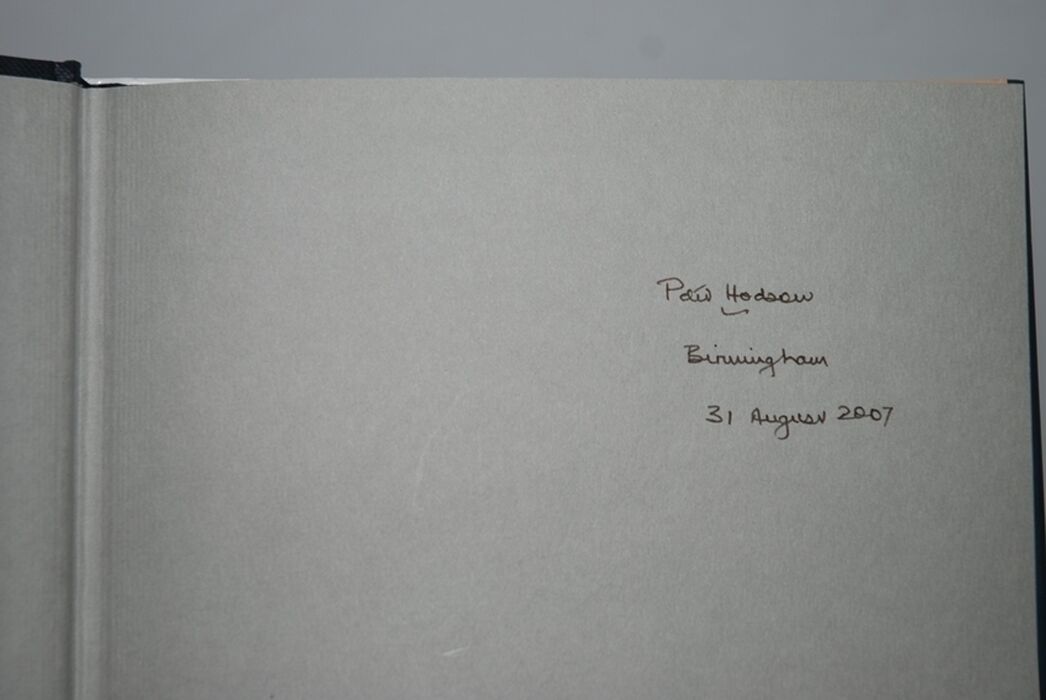 Peter Hodson
Birmingham
31 August 2007